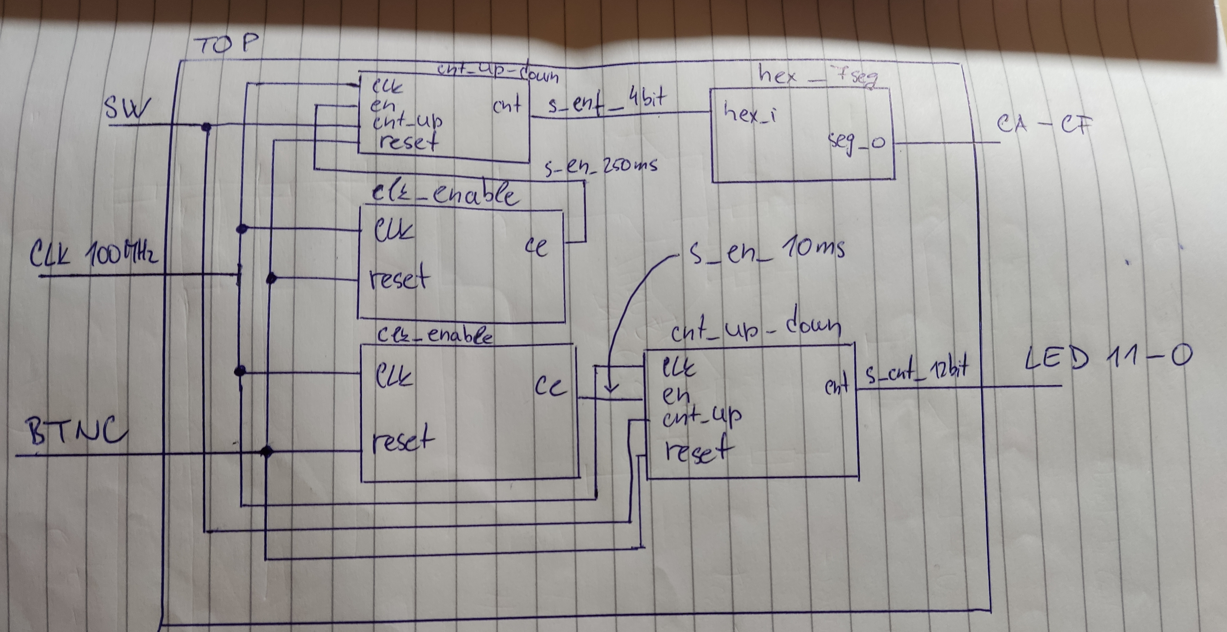 TOP
SW
CLK 100MHz
BTNC
cnt_up-down
clk
en
cnt_up
reset
cnt
s_cnt_4bit
hex_7seg
hex_i
seg_o
CA-CF
s_en_250ms
clk_enable
clk
reset
ce
s_en_10ms
clk_enable
clk
reset
ce
cnt_up-down
clk
en
cnt_up
reset
cnt
s_cnt_12bit
LED 11-0